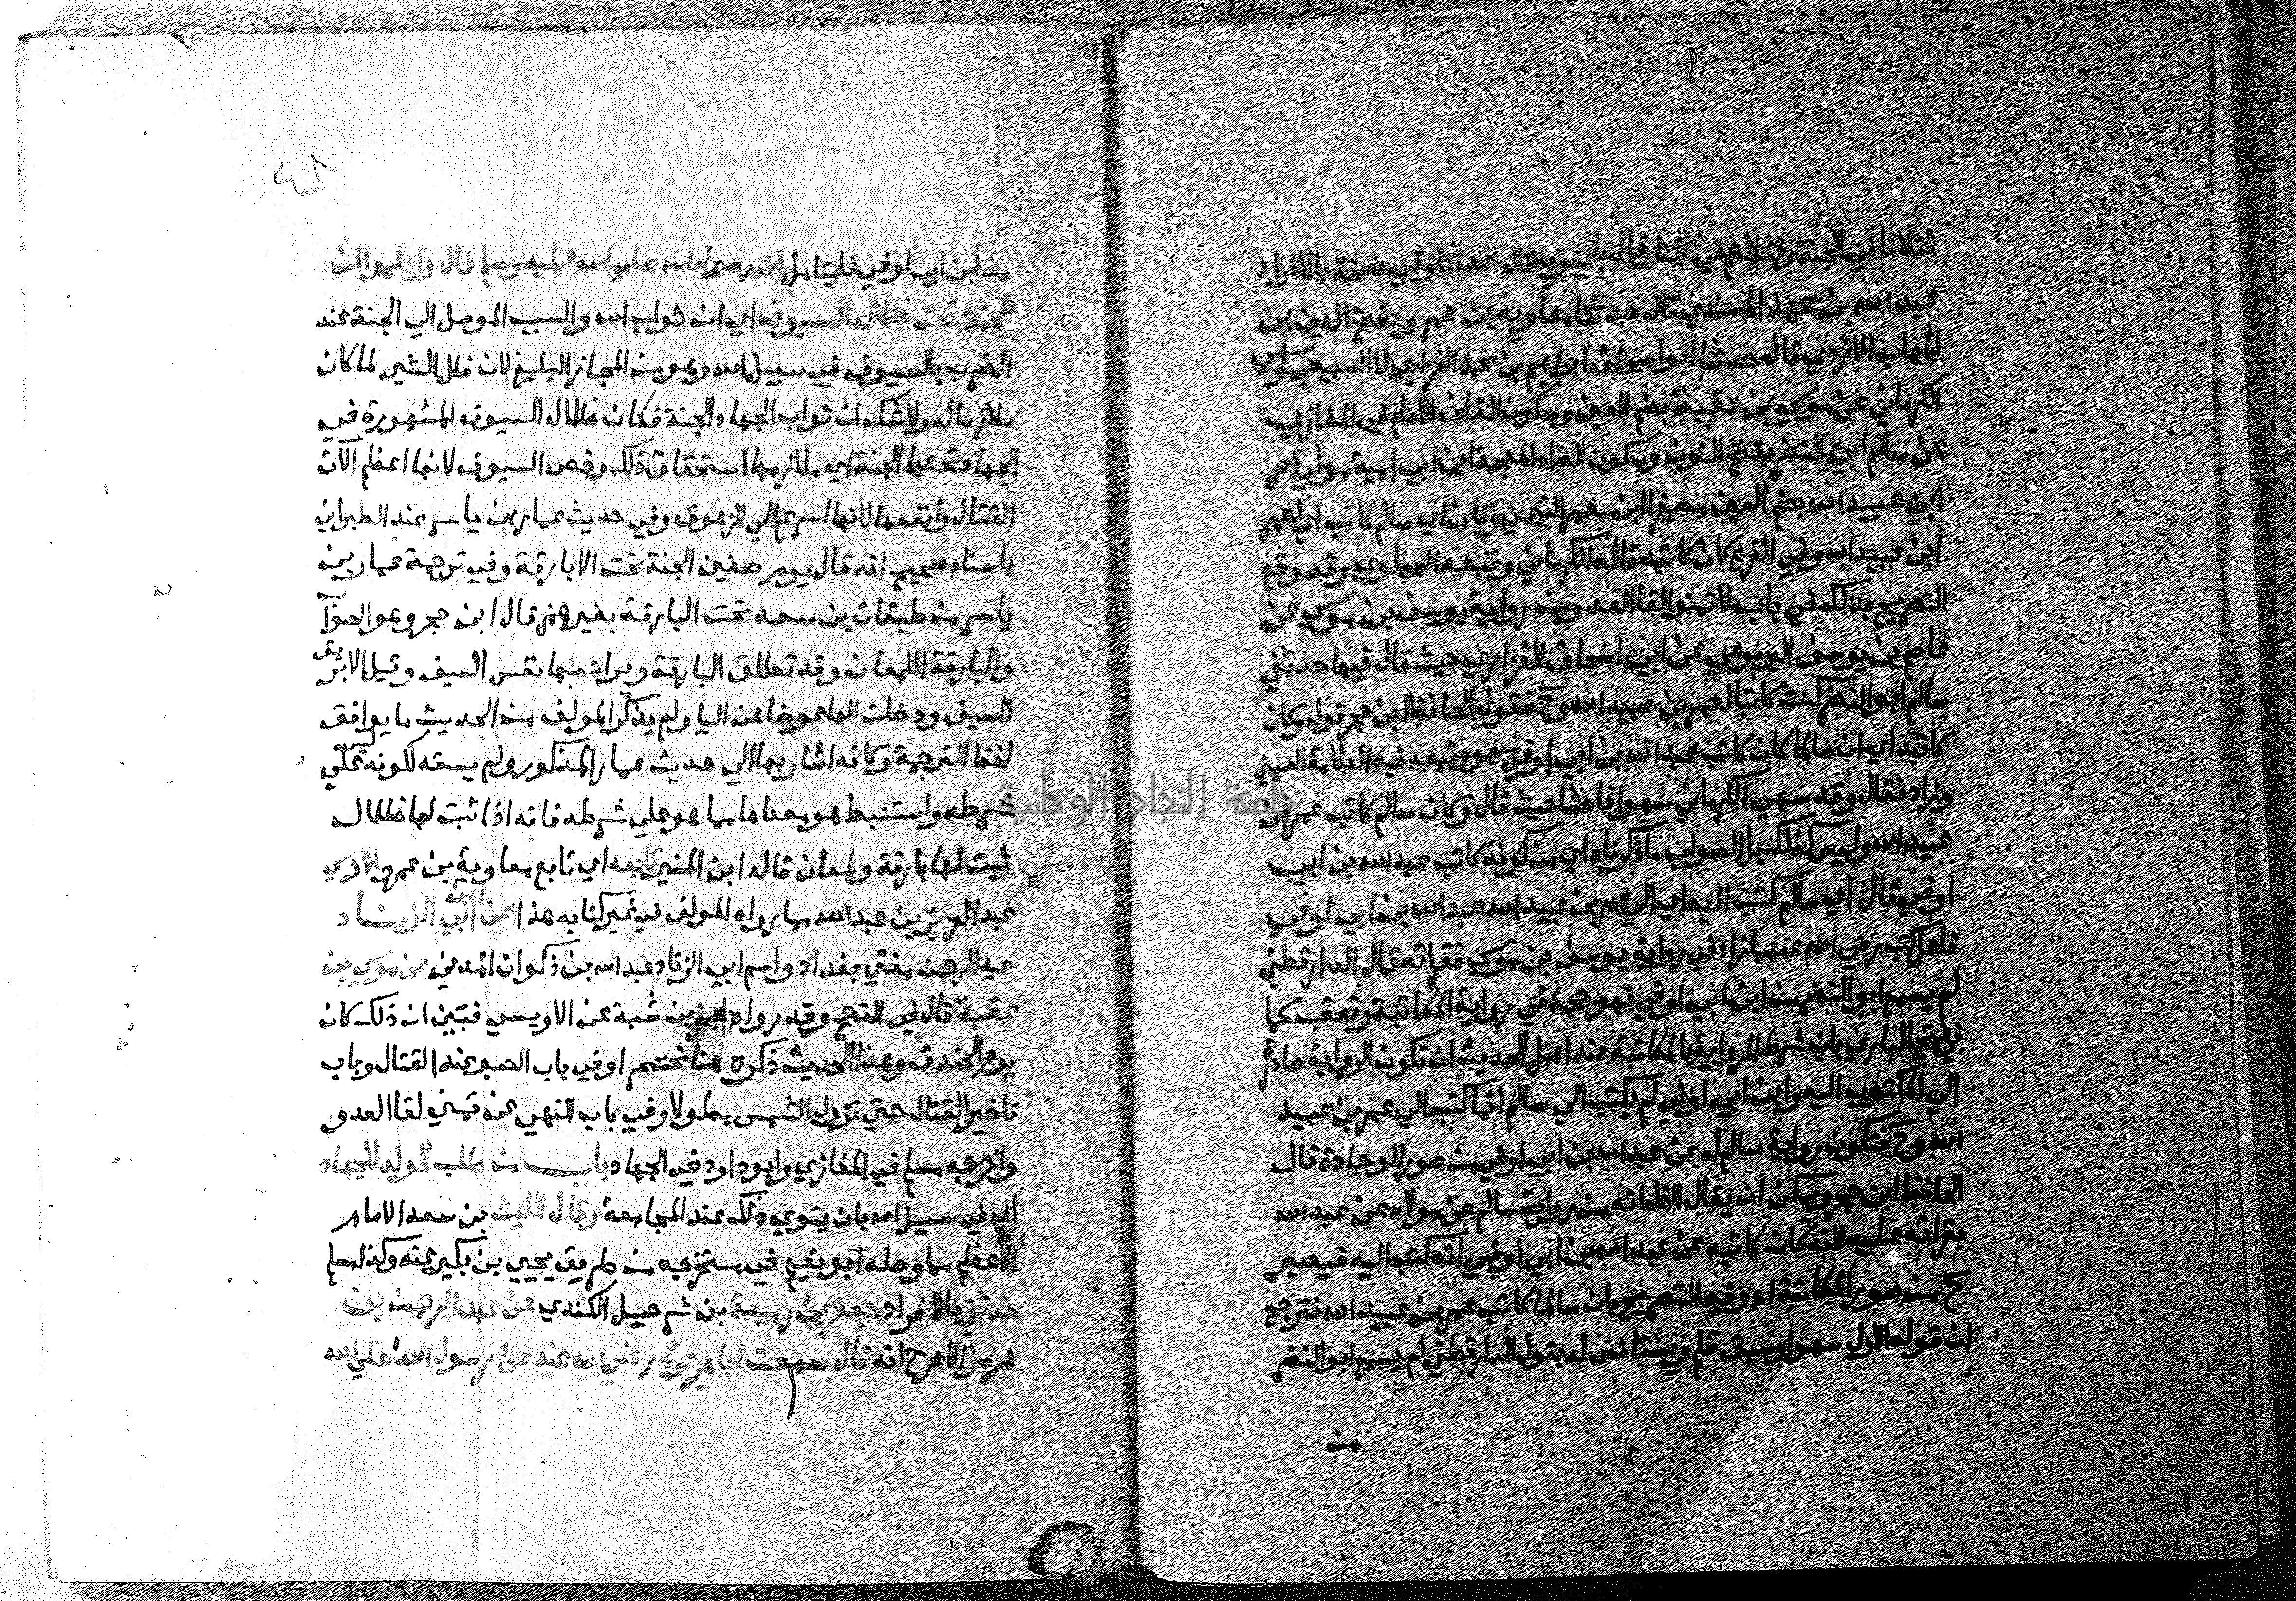 قتلانا في الجنة وقتلاهم في النار قال بلي وبه قال حدثنا وفي نسخة بالافراد
عبد الله بن محمد المسندي قال حدثنا معاوية بن عمرو بفتح العين ابن
المهلب الازدي قال حدثنا ابو اسحاق ابراهيم بن محمد الفزاري لا السبيعي وسهي
الكرماني عن موسي بن عقبة بضم العين وسكون القاف الامام في المغازي
عن سالم ابي النضر بفتح النون وسكون الضاد المعجمة ابن ابي امية مولي عمر
ابن عبيد الله بضم العين مصغرا ابن معمر التيمي وكان اي سالم كاتب اي لعمر
ابن عبيد الله وفي الفرع كان كاتبه قاله الكرماني وتبعه البرماوي وقد وقع
التصريح بذلك في باب لا تمنوا لقا العدو من رواية يوسف بن موسي عن
عاصم بن يوسف اليربوعي عن ابي اسحاق الفزاري حيث قال فيها حدثني
سالم ابو النضر كنت كاتبا لعمر بن عبيد الله وح فقول الحافظ ابن حجر قوله وكان
كاتبه اي ان سالما كان كاتب عبد الله بن ابي اوفي سهو وتبعه فيه العلامة العيني
وزاد فقال وقد سهي الكرماني سهوا فاحشا حيث قال وكان سالم كاتب عمر بن
عبيد الله وليس كذلك بل الصواب ما ذكرناه اي من كونه كاتب عبد الله بن ابي
اوفي قال اي سالم كتب اليه اي الي عمر بن عبيد الله عبد الله بن ابي اوفي
رضي الله عنهما زاد في رواية يوسف بن موسي فقراته قال الدارقطني
لم يسمع ابو النضر من ابن ابي اوفي فهو حجة في رواية المكاتبة وتعقب كما
في فتح الباري بان شرط الرواية بالمكاتبة عند اهل الحديث ان تكون الرواية صادرة
الي المكتوب اليه وابن ابي اوفي لم يكتب الي سالم انما كتب الي عمر بن عبيد
الله وح فتكون رواية سالم له عن عبد الله بن ابي اوفي من صور الوجادة قال
الحافظ ابن حجر ويمكن ان يقال الظاهر انه من رواية سالم عن مولاه عن عبد الله
بقراته عليه لانه كان كاتبه عن عبد الله بن ابي اوفي انه كتب اليه فيصير
ح من صور المكاتبة اه وفيه التصريح بان سالما كاتب عمر بن عبيد الله فترجح
ان قوله الاول سهو او سبق قلم ويستانس له بقول الدارقطني لم يسمع ابو النضر
من
٤٨
من ابن ابي اوفي ان رسول الله صلي الله عليه وسلم قال واعلموا ان
الجنة تحت ظلال السيوف اي ان ثواب الله والسبب الموصل الي الجنة عند
الضرب بالسيوف في سبيل الله وهو من المجاز البليغ لان ظل الشي لما كان
ملازما له ولا شك ان ثواب الجهاد الجنة فكان ظلال السيوف المشهورة في
الجهاد تحتها الجنة اي ملازمها استحقاق ذلك وخص السيوف لانها اعظم الات
القتال وانفعها لانها اسرع الي الزهوق وفي حديث عمار بن ياسر عند الطبراني
باسناد صحيح انه قال يوم صفين الجنة تحت الابارقة وفي ترجمة عمار بن
ياسر من طبقات بن سعد تحت البارقة بغير همز قال ابن حجر وهو الصواب
والبارقة اللمعان وقد تطلق البارقة ويراد بها نفس السيف وقيل الابريق
السيف ودخلت الها عوضا عن اليا ولم يذكر المولف من الحديث ما يوافق
لفظ الترجمة وكانه اشار بها الي حديث عمار المذكور ولم يسقه لكونه ليس علي
شرطه واستنبط معناها مما هو علي شرطه فانه اذا ثبت لها ظلال
ثبت لها بارقة ولمعان قاله ابن المنير تابعه اي تابع معاوية بن عمرو الاويسي
عبد العزيز بن عبد الله مما رواه المولف في غير كتابه هذا عن ابن ابي الزناد
عبد الرحمن مفتي بغداد واسم ابي الزناد عبد الله بن ذكوان المدني عن موسي بن
عقبة قال في الفتح وقد رواه عمر بن شبة عن الاويسي فبين ان ذلك كان
يوم الخندق وهذا الحديث ذكره هنا مختصرا وفي باب الصبر عند القتال وباب
تاخير القتال حتي تزول الشمس مطولا وفي باب النهي عن تمني لقا العدو
واخرجه مسلم في المغازي وابو داود في الجهاد باب من طلب الولد للجهاد
اي في سبيل الله بان ينوي ذلك عند المجامعة وقال الليث بن سعد الامام
الاعظم مما وصله ابو نعيم في مستخرجه من طريق يحيي بن بكير عنه وكذا مسلم
حدثني بالافراد جعفر بن ربيعة بن شرحبيل الكندي عن عبد الرحمن بن
هرمز الاعرج انه قال سمعت ابا هريرة رضي الله عنه عن رسول الله صلي الله
جامعة النجاح الوطنية